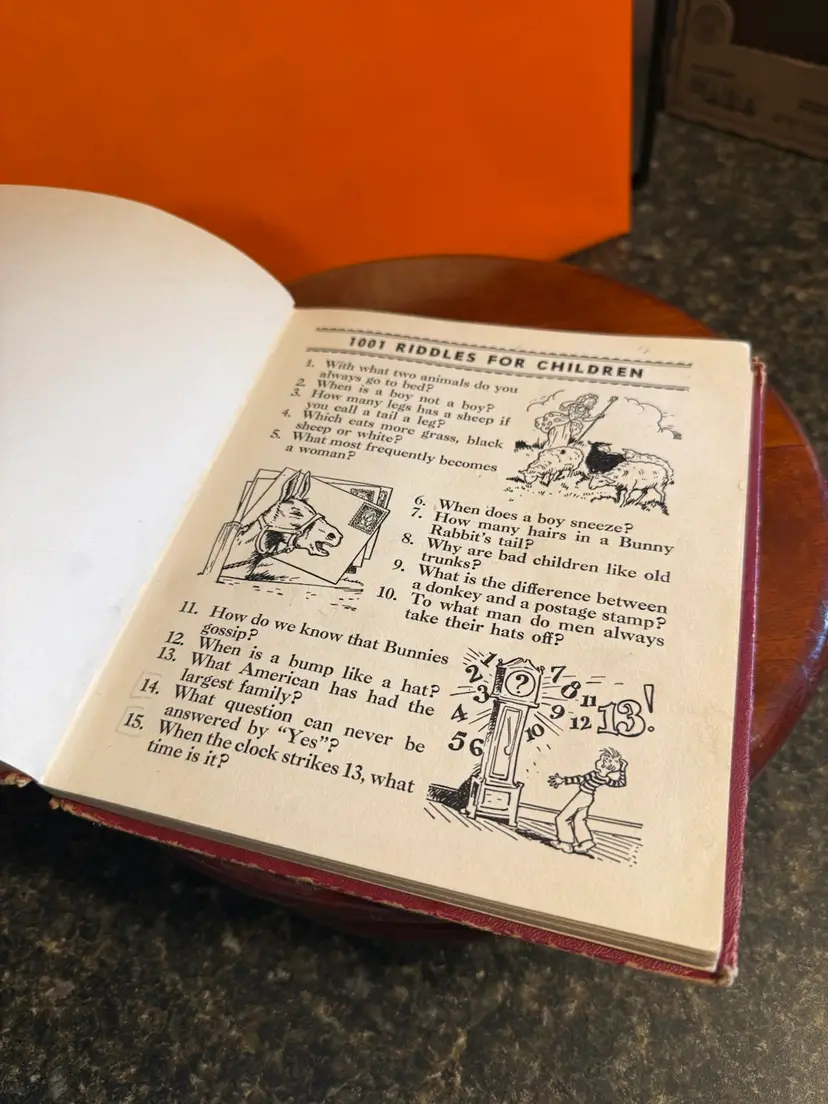 1001 RIDDLES FOR CHILDREN
1. With what two animals do you
always go to bed?
2. When is a boy not a boy?
3. How many legs has a sheep if
you call a tail a leg?
4. Which eats more grass, black
sheep or white?
5. What most frequently becomes
a woman?
6. When does a boy sneeze?
7. How many hairs in a Bunny
Rabbit's tail?
8. Why are bad children like old
trunks?
9. What is the difference between
a donkey and a postage stamp?
10. To what man do men always
take their hats off?
11. How do we know that Bunnies
gossip?
12. When is a bump like a hat?
13. What American has had the
largest family?
14. What question can never be
answered by "Yes"?
15. When the clock strikes 13, what
time is it?
1
2
3
4
5 6
?
7
8
9
10
11
12
13!